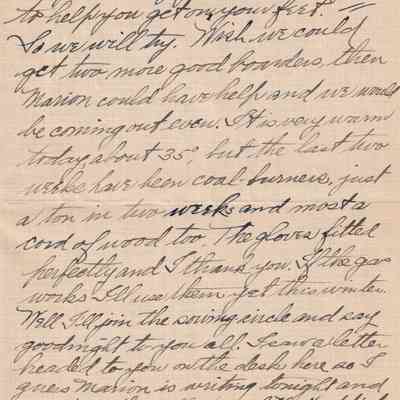 to help you get on your feet." =
So we will try. Wish we could
get two more good boarders, then
Marion could have help and we would
be coming out even. It is very warm
today, about 35°, but the last two
weeks have been coal-burners, just
a ton in two weeks and most a
cord of wood too. The gloves fitted
perfectly and I thank you. If the gas
works I'll use them yet this winter.
Well I'll join the sewing circle and say
goodnight to you all. I saw a letter
headed to you on the desk here so I
guess Marion is writing tonight and